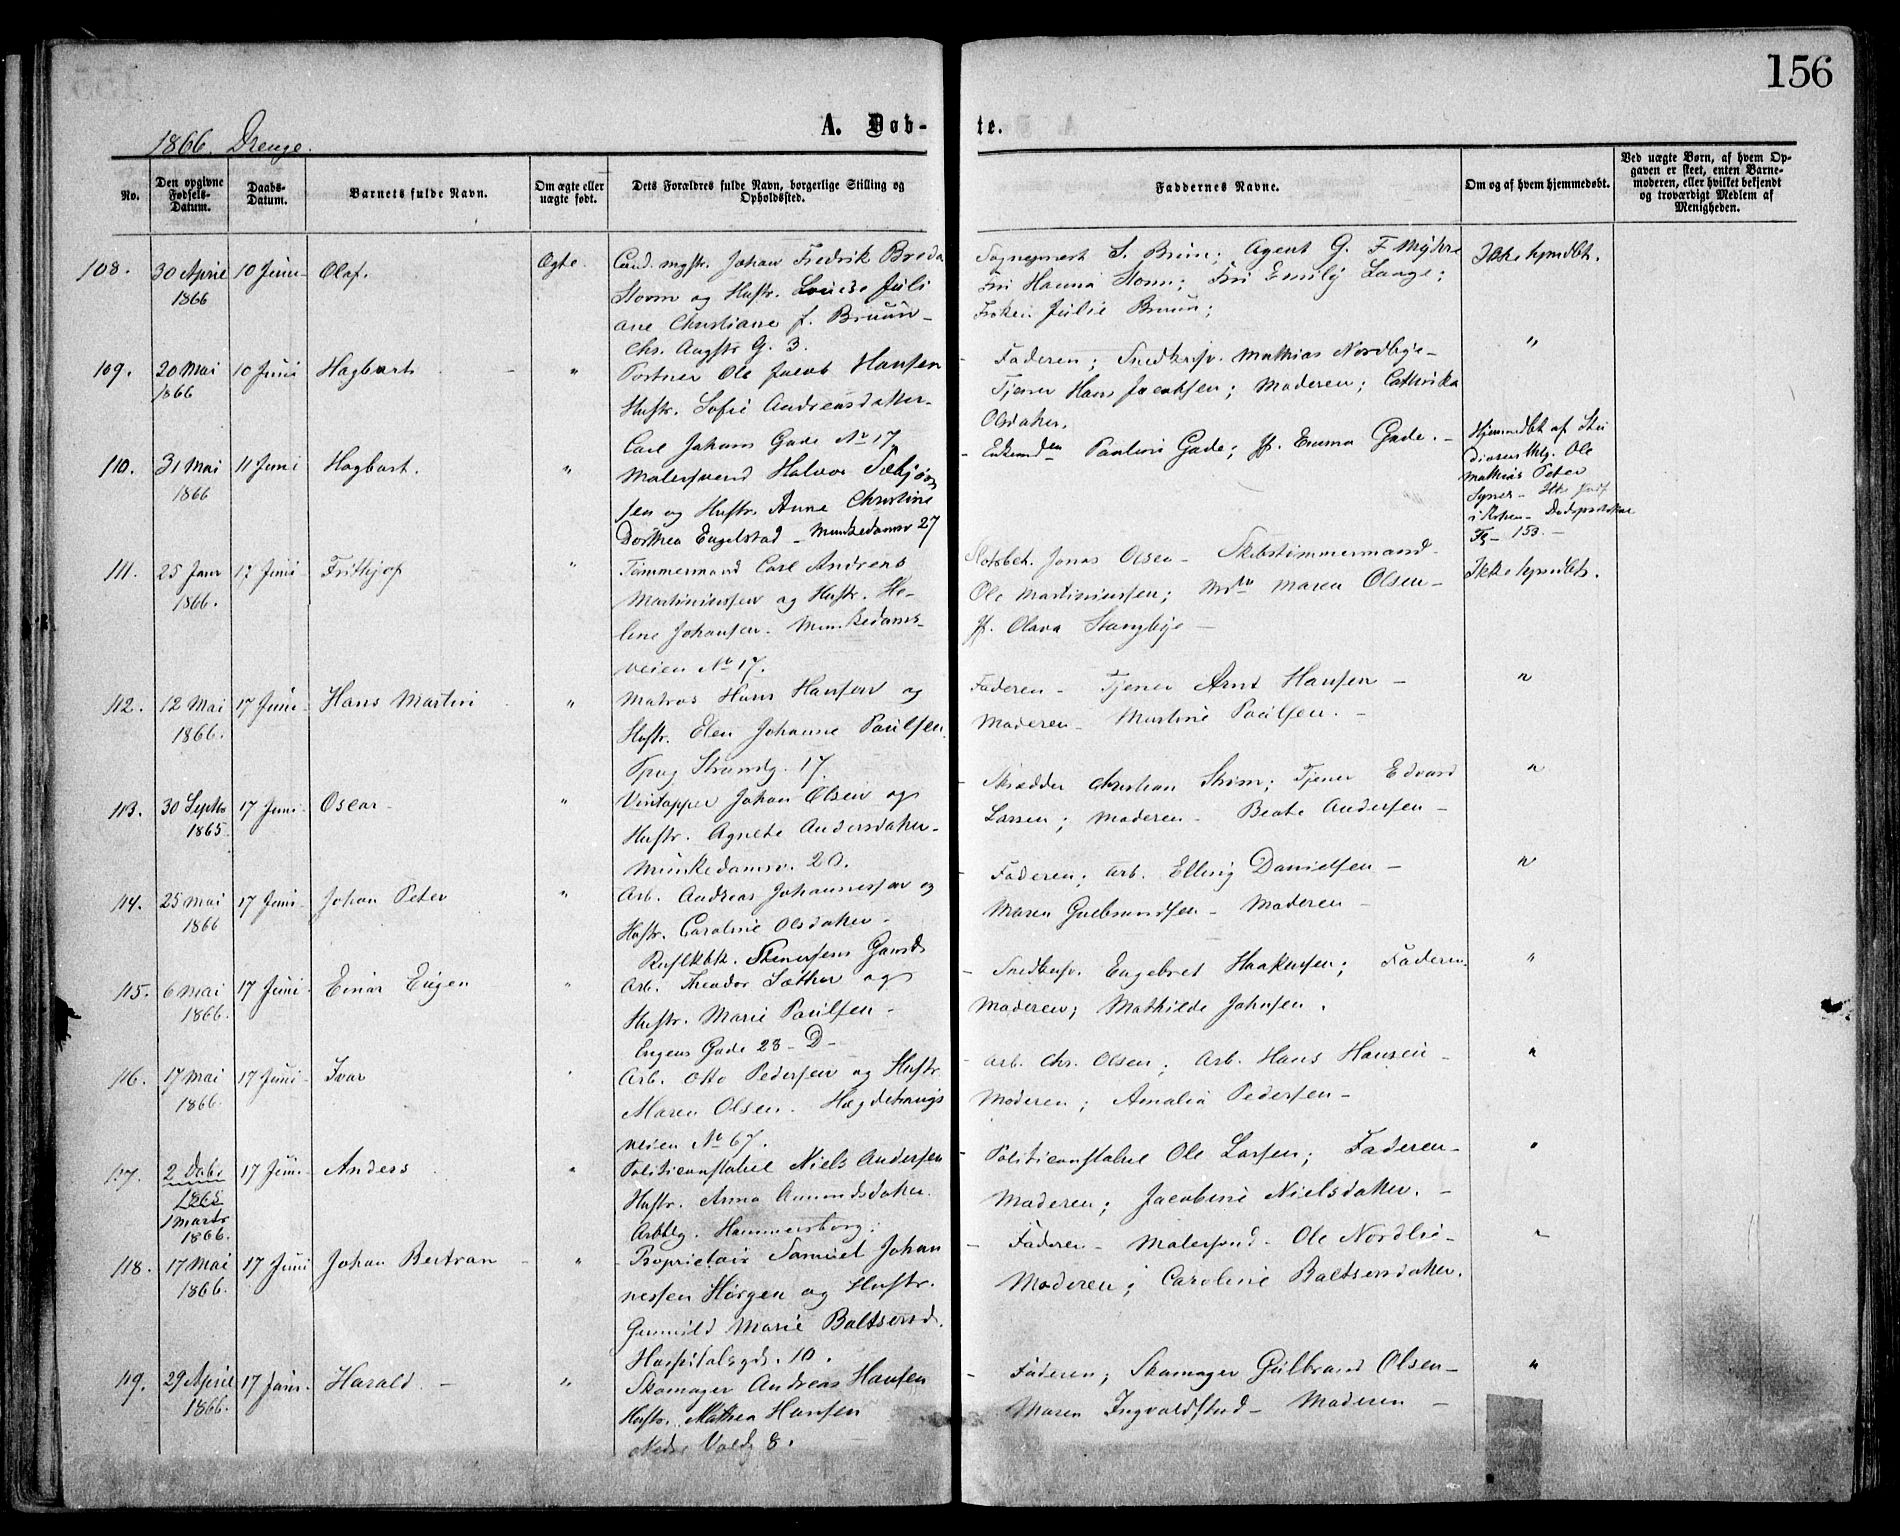 156
A. Døb- te.
1866. Drenge.
No.
Den opgivne Fødsels-Datum.
Daabs-Datum.
Barnets fulde Navn.
Om ægte eller uægte født.
Dets Forældres fulde Navn, borgerlige Stilling og Opholdssted.
Faddernes Navne.
Om og af hvem hjemmedøbt.
Ved uægte Børn, af hvem Opgaven er skeet, enten Barnemoderen, eller hvilket bekjendt og troværdigt Medlem af Menigheden.
108. 30 April 10 Juni Olaf. Ægte Cand. Johan Fredrik Breda
1866 Storm og Hustr. Louise Juli
ane Christiane f. Bruun
Chr. Augstr G. 3.
Sogneprest S. Bruun; Agent G. F.
Hanna Storm; Emily Lange;
Frøken Julie Bruun;
109. 20 Mai 10 Juni Hagbart " Portner Ole Jacob Hansen
1866 Hustr. Sofie Andreasdatter
Carl Johans Gade No 17
Faderen; Snedkersv. Mathias Nordbye
Tjener Hans Jacobsen; Moderen; Cathrika
Olsdatter. "
110. 31 Mai 11 Juni Hagbart. " Malersvend Halvor Torbjørn
1866 sen og Hustr. Anne Christine
Dorthea Engelstad - Munkedamsv 27
Pauline Gade; Jf. Emma Gade. -
Hjemmedøbt af Stu
Ole
Mathias Peter
111. 25 Janr 17 Juni Frithjof " Tømmermand Carl Andreas
1866. Martiniussen og Hustr. He-
lene Johansen. Munkedams-
veien No 17.
Slotsbet. Jonas Olsen - Skibstømmermand
Ole Martiniussen; Maren Olsen -
Jf. Olava Stangbye -
112. 12 Mai 17 Juni Hans Martin " Matros Hans Hansen og
1866. Hustr. Elen Johanne Paulsen
Strandg. 17.
Faderen - Tjener Arnt Hansen -
Moderen - Martine Paulsen. - "
113. 30 Septbr 17 Juni Oscar " Vintapper Johan Olsen og
1865. Hustr. Agnete Andersdatter
Munkedamsv. 20.
Skrædder Christian Strøm; Tjener Edvard
Larsen; Moderen - Beate Andersen - "
114. 25 Mai 17 Juni Johan Peter " Arb. Andreas Johannessen og
1866 Hustr. Caroline Olsdatter -
Faderen; Arb. Elling Danielsen -
Maren Gulbrandsen - Moderen - "
115. 6 Mai 17 Juni Einar Eugen " Arb. Theodor Sæther og
1866. Hustr. Marie Paulsen -
Engens Gade 28 - D -
Snedkersv. Engebret Haakensen; Faderen.
Moderen; Mathilde Johnsen. "
116. 17 Mai 17 Juni Ivar " Arb. Otto Pedersen og Hustr.
1866. Maren Olsen. Hægdehaugs
veien No 67.
Arb. Chr. Olsen; Arb. Hans Hansen -
Moderen; Amalia Pedersen - "
117. 2 Debr 17 Juni Anders " Politiconstabel Niels Andersen
1865 Hustr. Anna Amundsdatter.
1 Marts Arbbg. Hammersborg;
1866.
Politiconstabel Ole Larsen; Faderen -
Moderen; Jacobine Nielsdatter. - "
118. 17 Mai 17 Juni Johan Bertran " Proprietair Samuel Johan
1866. nessen Hørgen og Hustr.
Gunnild Marie Baltsersd.
Hospitalsgd. 10.
Faderen - Malersvend - Ole Nordlie -
Moderen; Caroline Baltsersdatter. "
119. 29 April 17 Juni Harald. " Skomager Andreas Hansen
1866. Hustr. Mathea Hansen
Nedre Voldg 8.
Faderen; Skomager Gulbrand Olsen -
Maren Ingvaldstad - Moderen - "